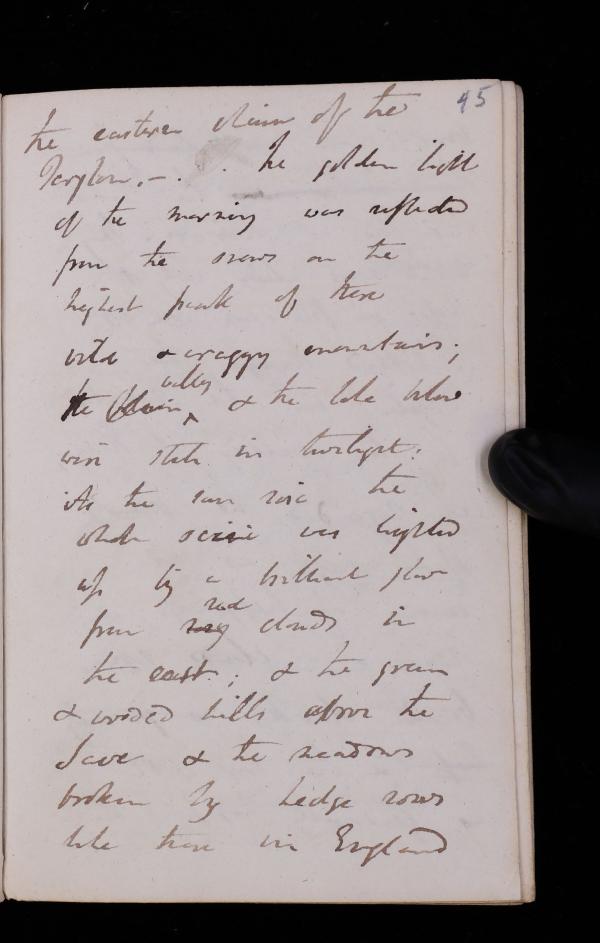 45
the eastern chain of the
Terglou. – . . The golden light
of the morning was reflected
from the snows on the
highest peak of these
wild & craggy mountains;
valley
the plain & the lake below
were still in twilight.
As the sun rose the
whole scene was lighted
up by a brilliant glow
red
from rosy clouds in
the east; & the green
& wooded hills above the
Save & the meadows
broken by hedge rows
like those in England